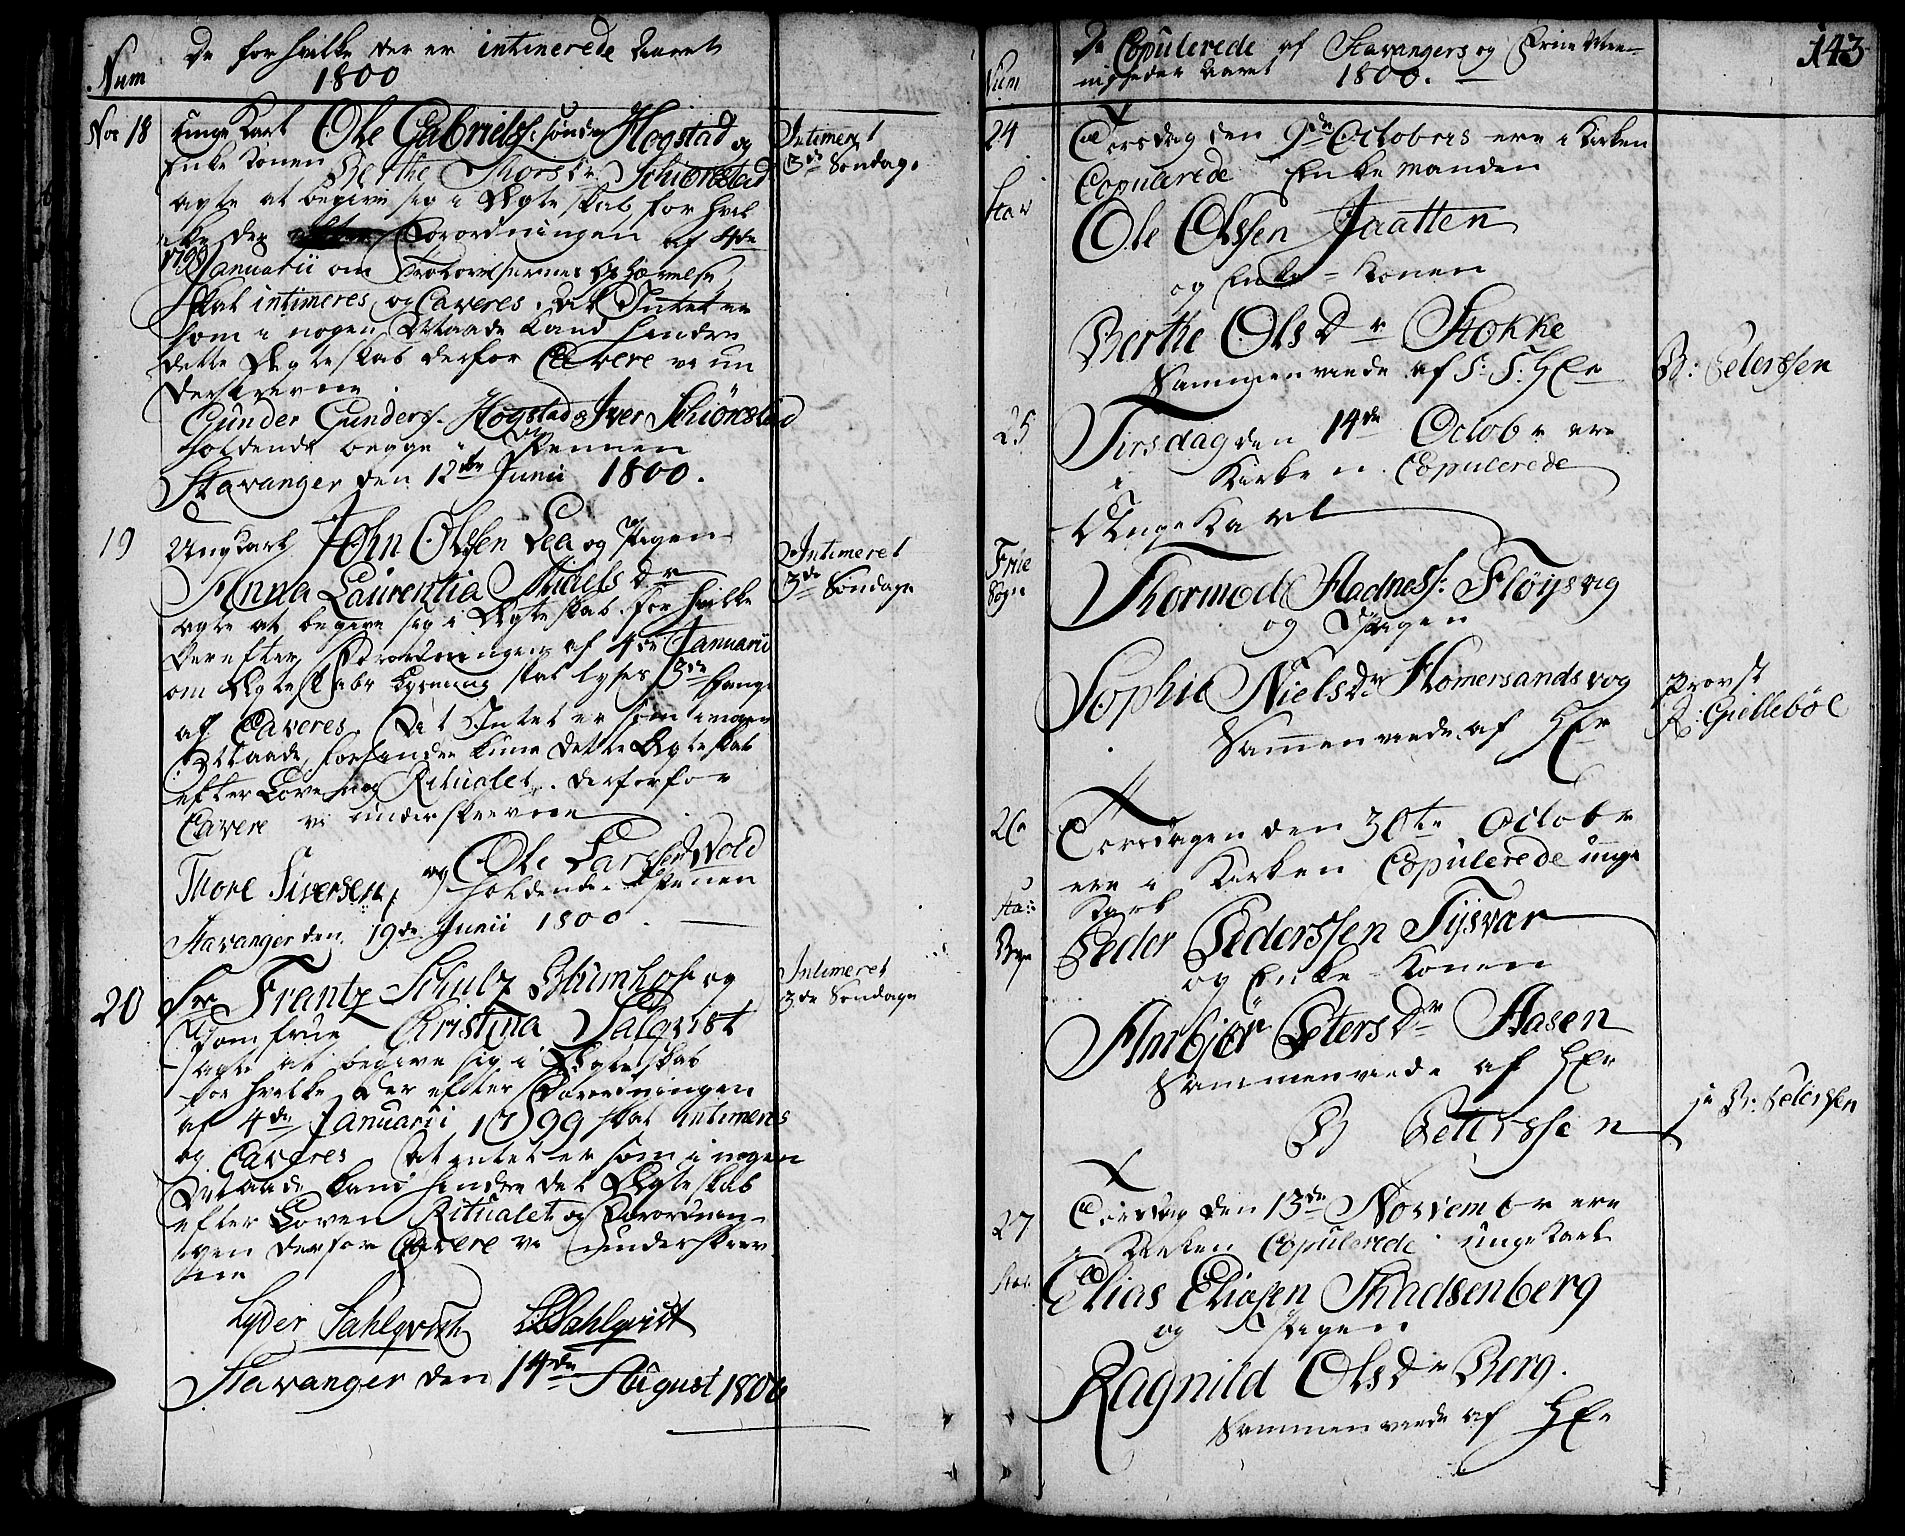 De for hvilke der er intimerede Aaret
Num 1800
No: 18 unge Karl Ole Gabriels: søndre Hogstad og
Enke Konen Berthe Thorsdr Schiørestad
agte at begive sig i Ægteskab for hvil
ke der Forordningen af 4de
1799 Januarii om Trolovelsernes Ophævelse
skal intimeres og Caveres. At Intet er
som i nogen Maade kand hindre
dette Ægteskab derfor Cavere vi un
derskrevne.
Gunder Gunders: Hogstad og Iver Schiørestad
holdende begge i Pennen
Stavanger den 12te Junii 1800.
Intimeret
3de Søndage
19 Ungkarl John Olsen Lea og Pigen
Anna Laurentia Michelsdr
agte at begive sig i Ægteskab for hvilke
der efter Forordningen af 4de Januarii
om Ægteskabs Lysning skal lyses 3de gange
og Caveres, At Intet er som i nogen
Maade forhindre kune dette Ægteskab
efter Loven og Ritualet. derforfor
Cavere vi underskrevne
Thore Siversen, og Ole Larssen Wold
holdende i Penen
Stavanger den 19de Junii 1800.
Intimeret
3de Søndage
20 Sr Frantz Schulz Blumhof og
Jomfrue Kristina Salqvist
agte at begive sig i Ægteskab
for hvilke der efter Forordningen
af 4de Januarii 1799 skal intimeres
og Caveres At intet er som i nogen
Maade kand hindre det Ægteskab
efter Loven Ritualet og Forordnin-
gen derfor Cavere vi underskrev
ne
Lyder Sahlqvist Sahlqvist
Stavanger den 14de August 1800
Intimeret
3de Søndage
143
De Copulerede af Stavangers og Frue Mee-
Num nigheder Aaret 1800.
24 Torsdag den 9de Octobris ere i Kirken
Stav Copulerede Enkemanden
Ole Olssen Jaatten
og Enke-Konen
Berthe Olsdr Stokke
Sammenviede af S: T: Hr B: Peterssen
25 Tirsdag den 14de Octobr ere
i Kirken Copulerede
Unge Karl
Frue
Sogn
Thormod Aadness: Fløysvig
og Pigen
Sophie Nielsdr Homersandsvog
Sammenviede af Hr
Provst
R: Gjellebøl
26 Torsdagen den 30te Octobr
ere i Kirken Copulerede unge
Sta: Karl
Bye Peder Pederssen Tysvar
og Enke-Konen
Marbjør Petersdr Aasen
Sammenviede af Hr
B Peterssen B: Peterssen
27 Torsdag den 13de Novembr ere
i Kirken Copulerede ungekarl
Stav Elias Eliasen Skadsenberg
og Pigen
Ragnild Olsdr Berg.
Sammenviede af Hr